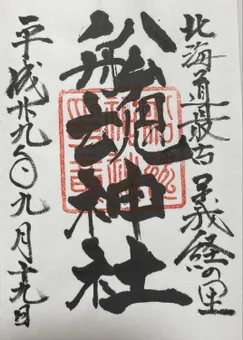 北海道最古 義経の里
船魂神社
平成廿九年九月十九日